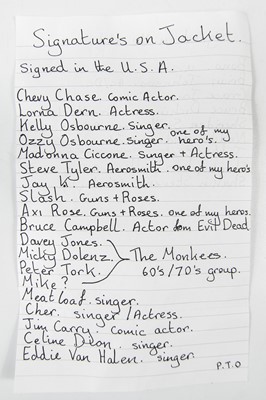 Signature's on Jacket.
Signed in the U.S.A.
Chevy Chase. Comic Actor.
Lorna Dern. Actress.
Kelly Osbourne. Singer.
Ozzy Osbourne. Singer. one of my hero's.
Madonna Ciccone. Singer + Actress.
Steve Tyler. Aerosmith. one of my hero's
Jay K. Aerosmith.
Slash. Guns + Roses.
Axl Rose. Guns + Roses. one of my heros.
Bruce Campbell. Actor from Evil Dead.
Davey Jones.
Micky Dolenz.
Peter Tork.
Mike ?
The Monkees.
60's/70's group.
Meatloaf. singer.
Cher. singer/Actress.
Jim Carry. comic actor.
Celine Dion. singer.
Eddie Van Halen. singer.
P.T.O